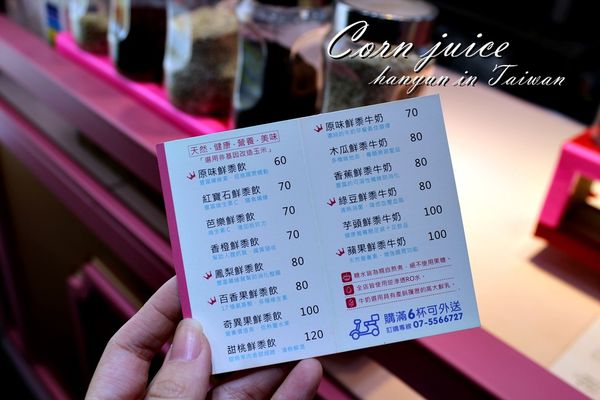 Corn juice
hanyun in Taiwan
天然‧健康‧營養‧美味
「選用非基因改造玉米」
原味鮮黍飲 60
紅寶石鮮黍飲 70
芭樂鮮黍飲 70
香橙鮮黍飲 70
鳳梨鮮黍飲 80
百香果鮮黍飲 80
奇異果鮮黍飲 100
甜桃鮮黍飲 120
原味鮮黍牛奶 70
木瓜鮮黍牛奶 80
香蕉鮮黍牛奶 80
綠豆鮮黍牛奶 80
芋頭鮮黍牛奶 100
蘋果鮮黍牛奶 100
糖水皆為純自熬煮，絕不使用果糖。
全店皆使用逆滲透RO水。
牛奶選用具有產銷履歷的高大鮮乳。
購滿6杯可外送
訂購專線 07-5566727